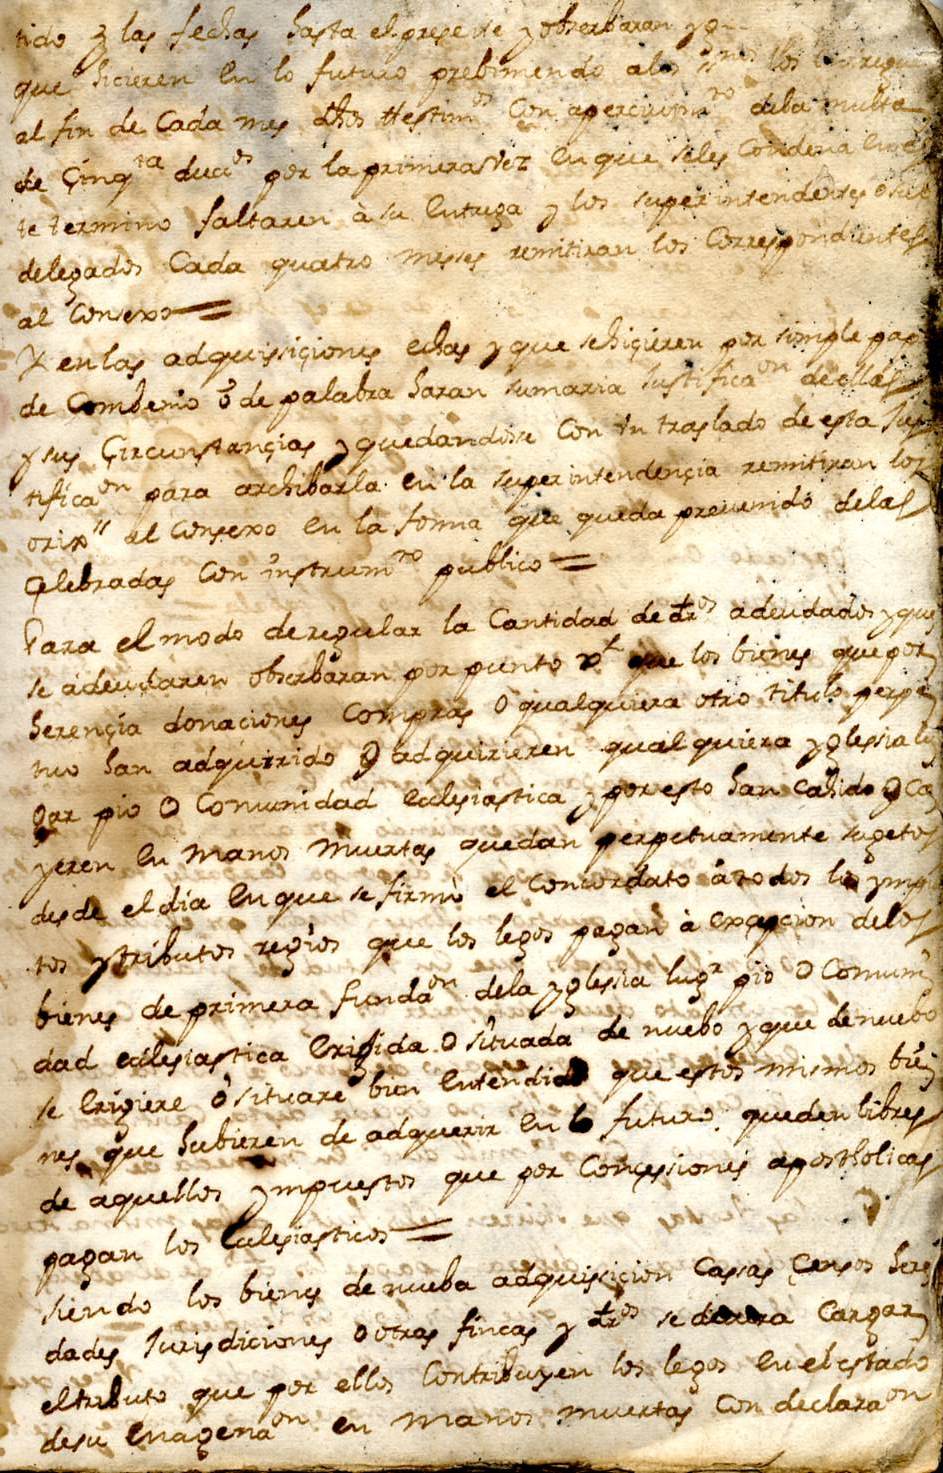 tido y las fechas hasta el presente y obserbaran
que hicieren en lo futuro prebiniendo a los
al fin de Cada mes dhos ttestimos Con apercivimto dela multa
de Çinqta ducs por la primera vez en que seles Condena en
te termino faltaren à su entrega y los superintendentes
delegados Cada quatro meses remitiran los Correspondientes
al Consexo =
Y en las adquisiçiones echas y que se hiçieren por simple pap
de Combenio ò de palabra haran sumaria Justificaon de ellas
y sus Çircunstançias y quedandose Con un traslado de esta Jus
tificaon para archibarla en la superintendençia remitiran los
orixs al Consexo en la forma que queda prevenido delas
Çelebradas Con instrumto publico =
Para el modo de regular la Cantidad de dros adeudados y que
se adeudaren obserbaran por punto gl que los bienes que por
herençia donaciones Compras o qualquiera otro titulo perpe
tuo han adquirido o adquirieren qualquiera yglesia lu
gar pio o Comunidad eclesiastica y por esto han Caido o Ca
yeren en manos muertas quedan perpetuamente sugetos
desde el dia en que se firmò el Concordato à todos los ympu
tos y tributos regios que los legos pagan à excepcion delos
bienes de primera fundaon dela yglesia lugr pio o Comuni
dad eclesiastica erigida o situada de nuebo y que de nuebo
se erigiere ò situare bien entendido que estos mismos bie
nes que hubieren de adquerir en lo futuro queden libres
de aquellos ympuestos que por Concesiones apostholicas
pagan los eclesiasticos =
siendo los bienes de nueba adquisiçion Cassas Çensos here
dades Jurisdiciones o otras fincas y dros se devera Cargar
el tributo que por ellos Contribuyen los legos en el estado
de su enagenaon en manos muertas Con declaraon